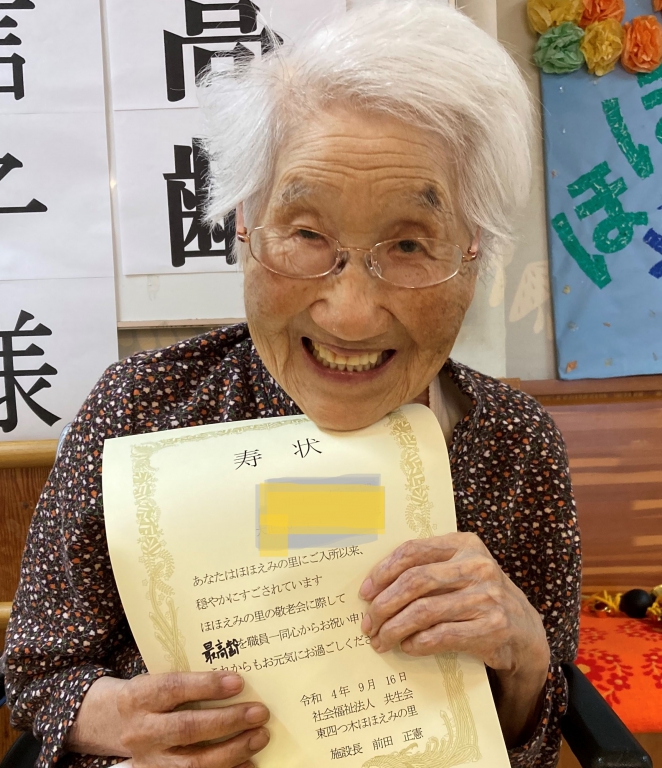 高
齢
信
子
様
ほ
ほ
寿 状
あなたはほほえみの里にご入所以来、
穏やかにすごされています
ほほえみの里の敬老会に際して
最高齢を職員一同心からお祝い申し
これからもお元気にお過ごしくださ
令和 4年 9月 16日
社会福祉法人 共生会
東四つ木ほほえみの里
施設長 前田 正憲